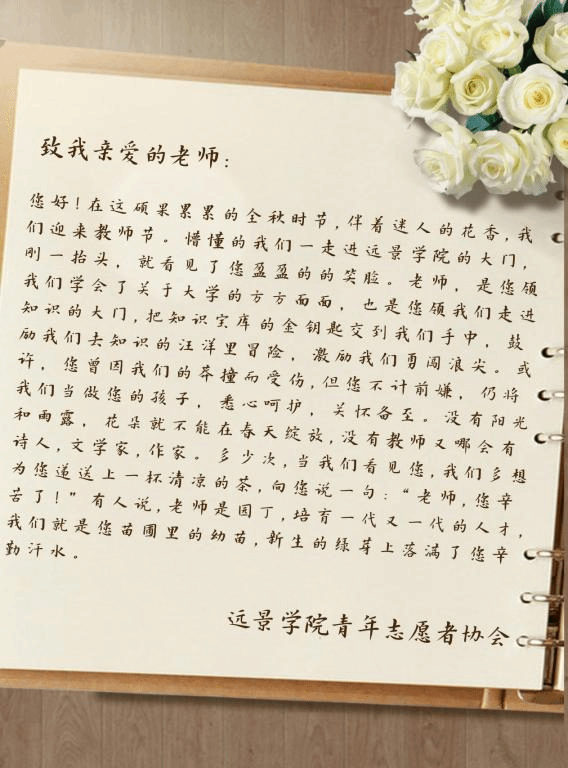 致我亲爱的老师：
您好！在这硕果累累的全秋时节，伴着迷人的花香，我
们迎来教师节。懵懂的我们一走进远景学院的大门，
刚一抬头，就看见了您盈盈的的笑脸。老师，是您领
我们学会了关于大学的方方面面，也是您领我们走进
知识的大门，把知识宝库的金钥匙交到我们手中，鼓
励我们去知识的汪洋里冒险，激励我们勇闯浪尖。或
许，您曾因我们的莽撞而受伤，但您不计前嫌，仍将
我们当做您的孩子，悉心呵护，关怀备至。没有阳光
和雨露，花朵就不能在春天绽放，没有教师又哪会有
诗人，文学家，作家。多少次，当我们看见您，我们多想
为您递送上一杯清凉的茶，向您说一句：“老师，您辛
苦了！”有人说，老师是园丁，培育一代又一代的人才，
我们就是您苗圃里的幼苗，新生的绿芽上落满了您辛
勤汗水。
远景学院青年志愿者协会